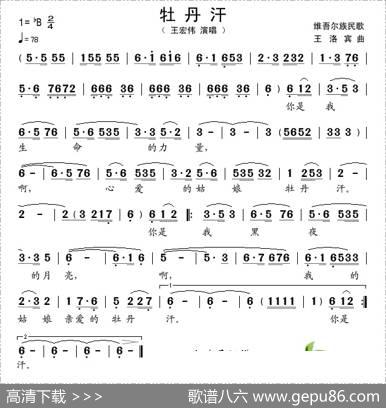 牡丹汗
1=♭B 2/4
（ 王宏伟 演唱 ）
维吾尔族民歌
♩=78
王 洛 宾 曲
( 5·5 55 | 15 55 55 | 6·1 61 6 | 6·1 6 53 | 2·3 232 | 1·3 76 |
5·6 7672 | 666 066 | 666 066 | 666 0 ) | 6 1 2 | 3·5 3 |
你是 我
6·5 76 | 5·6 535 | 3·3 5·2 | 3 - | 3 - | 3 (5652 | 33 3 ) |
生 命 的力 量，
6 - | 6·5 76 | 5·6 535 | 6·5 535 | 0 5 32 | 1 253 | 2 - |
啊， 心 爱 的 姑 娘 牡 丹 汗。
2 - | 2 (3 217 | 6 ) 6 1 2 :| 3·5 3 | 6·5 76 | 5·6 535 |
你是 我 黑 夜
3·3 5·2 | 3 - | 3 - | 6 - | 6·5 76 | 5·6 535 | 6·5 535 |
的月 亮， 啊， 我 的
2·3 2 | 1 7·6 | 5 227 | 6 - | 6 - | 6 (1111 | 1 ) 6 1 2 :|
姑 娘 亲爱的 牡 丹 汗。 你是
6 - | 6 - | 6 - | 6 - ‖
汗。
高清下载 >>>
歌谱八六 www.gepu86.com